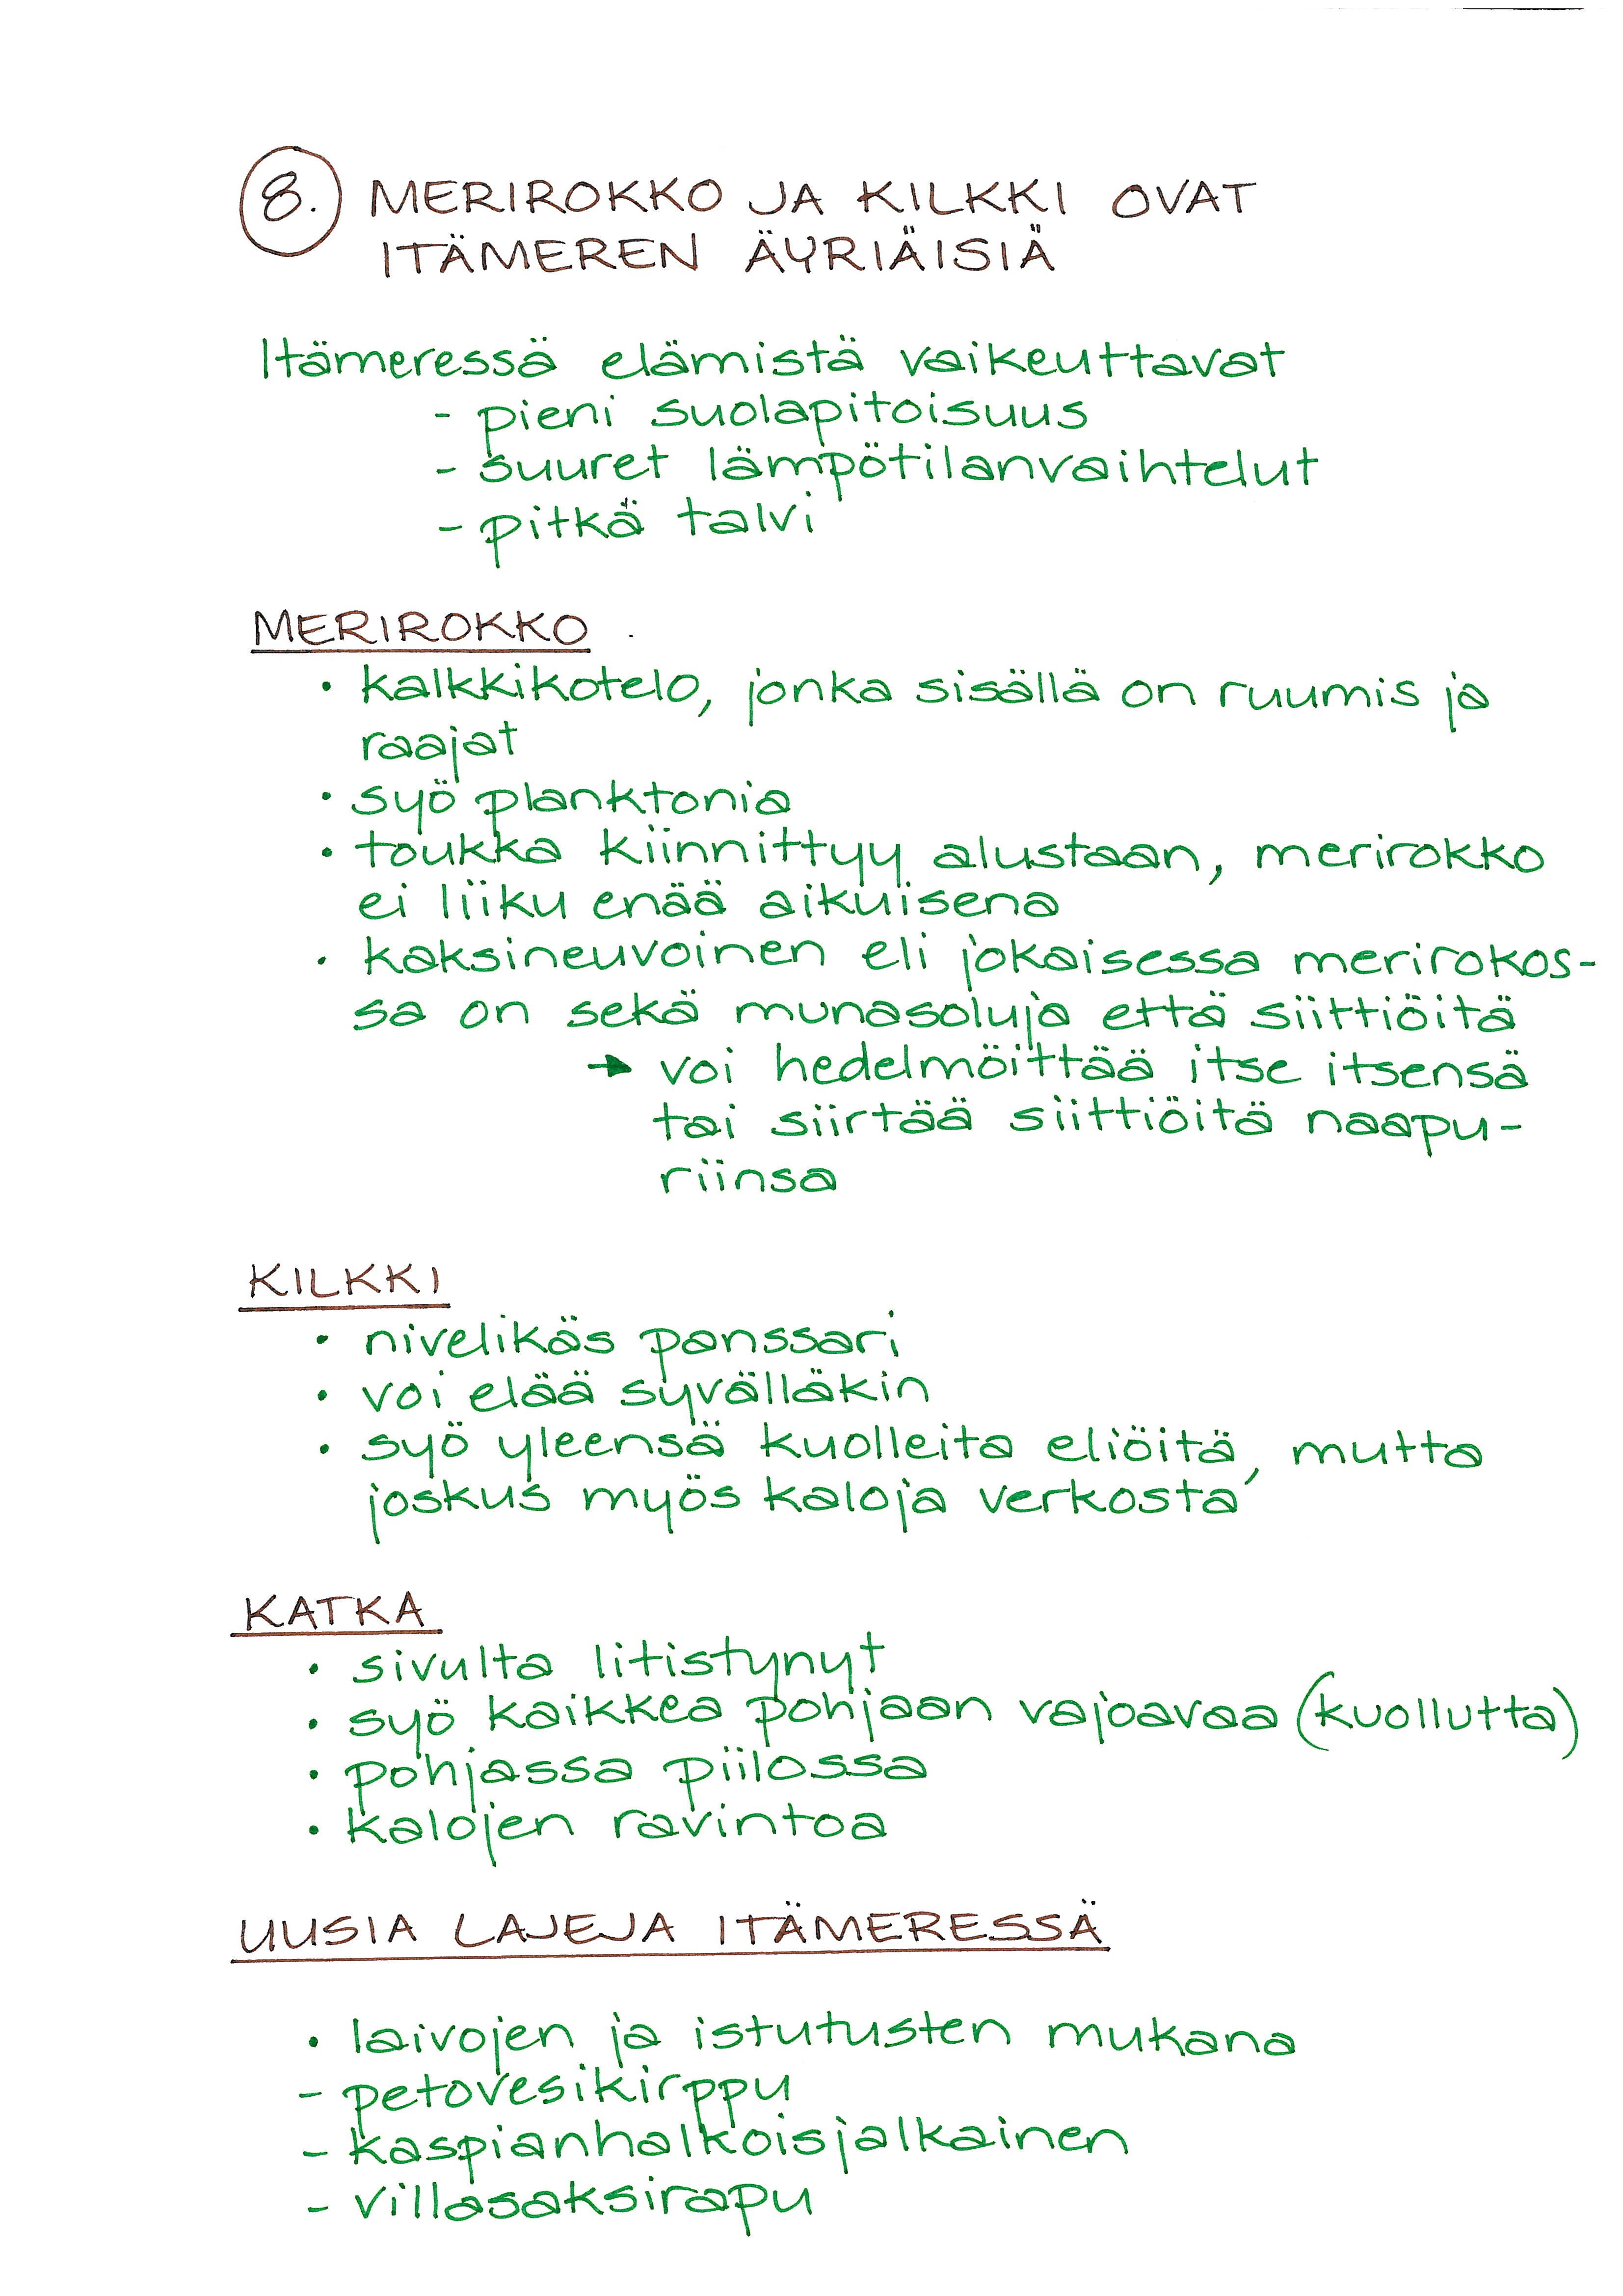 8. MERIROKKO JA KILKKI OVAT
ITÄMEREN ÄYRIÄISIÄ
Itämeressä elämistä vaikeuttavat
- pieni suolapitoisuus
- suuret lämpötilanvaihtelut
- pitkä talvi
MERIROKKO
• kalkkikotelo, jonka sisällä on ruumis ja
raajat
• syö planktonia
• toukka kiinnittyy alustaan, merirokko
ei liiku enää aikuisena
• kaksineuvoinen eli jokaisessa merirokos-
sa on sekä munasoluja että siittiöitä
→ voi hedelmöittää itse itsensä
tai siirtää siittiöitä naapu-
riinsa
KILKKI
• nivelikäs panssari
• voi elää syvälläkin
• syö yleensä kuolleita eliöitä, mutta
joskus myös kaloja verkosta
KATKA
• sivulta litistynyt
• syö kaikkea pohjaan vajoavaa (kuollutta)
• pohjassa piilossa
• kalojen ravintoa
UUSIA LAJEJA ITÄMERESSÄ
• laivojen ja istutusten mukana
- petovesikirppu
- kaspianhalkoisjalkainen
- villasaksirapu